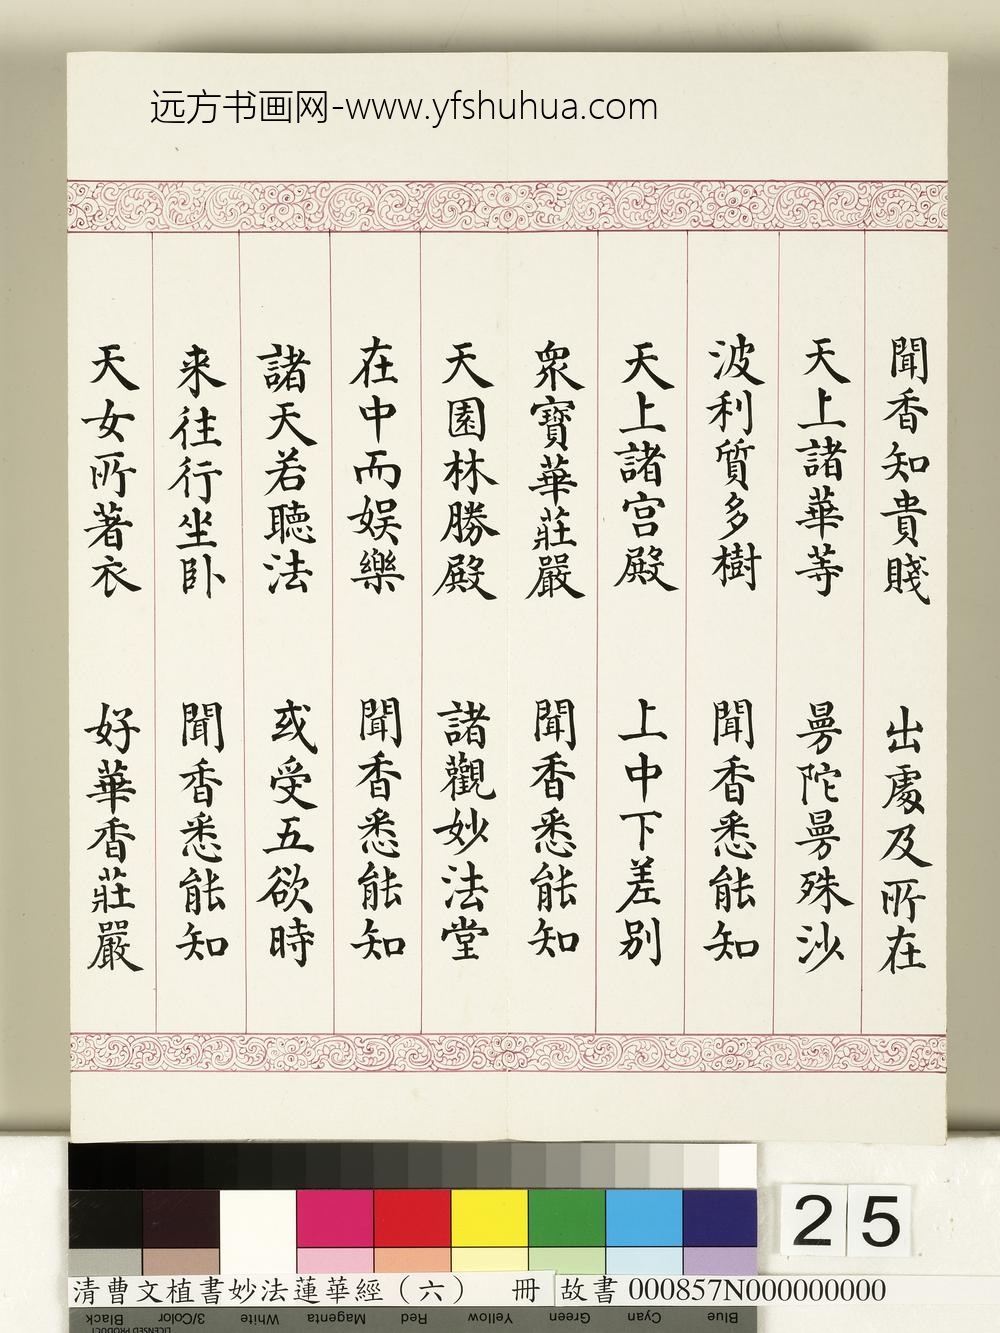 远方书画网-www.yfshuhua.com
聞香知貴賤 出處及所在
天上諸華等 曼陀曼殊沙
波利質多樹 聞香悉能知
天上諸宮殿 上中下差別
衆寶華莊嚴 聞香悉能知
天園林勝殿 諸觀妙法堂
在中而娱樂 聞香悉能知
諸天若聽法 或受五欲時
来往行坐卧 聞香悉能知
天女所著衣 好華香莊嚴
25
清曹文植書妙法蓮華經（六） 冊
故書 000857N000000000
Black 3/Color White Magenta Red Yellow Green Cyan Blue
LICENSED PRODUCT